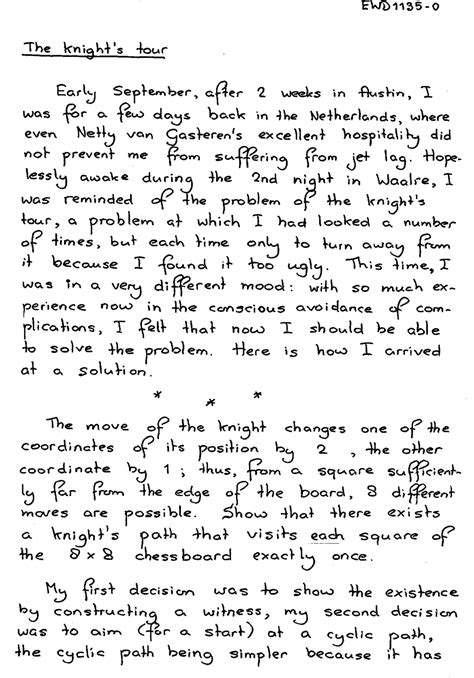 EWD1135-0
The knight's tour
Early September, after 2 weeks in Austin, I
was for a few days back in the Netherlands, where
even Netty van Gasteren's excellent hospitality did
not prevent me from suffering from jet lag. Hope-
lessly awake during the 2nd night in Waalre, I
was reminded of the problem of the knight's
tour, a problem at which I had looked a number
of times, but each time only to turn away from
it because I found it too ugly. This time, I
was in a very different mood: with so much ex-
perience now in the conscious avoidance of com-
plications, I felt that now I should be able
to solve the problem. Here is how I arrived
at a solution.
* * *
The move of the knight changes one of the
coordinates of its position by 2 , the other
coordinate by 1 ; thus, from a square sufficient-
ly far from the edge of the board, 8 different
moves are possible. Show that there exists
a knight's path that visits each square of
the 8 × 8 chessboard exactly once.
My first decision was to show the existence
by constructing a witness, my second decision
was to aim (for a start) at a cyclic path,
the cyclic path being simpler because it has